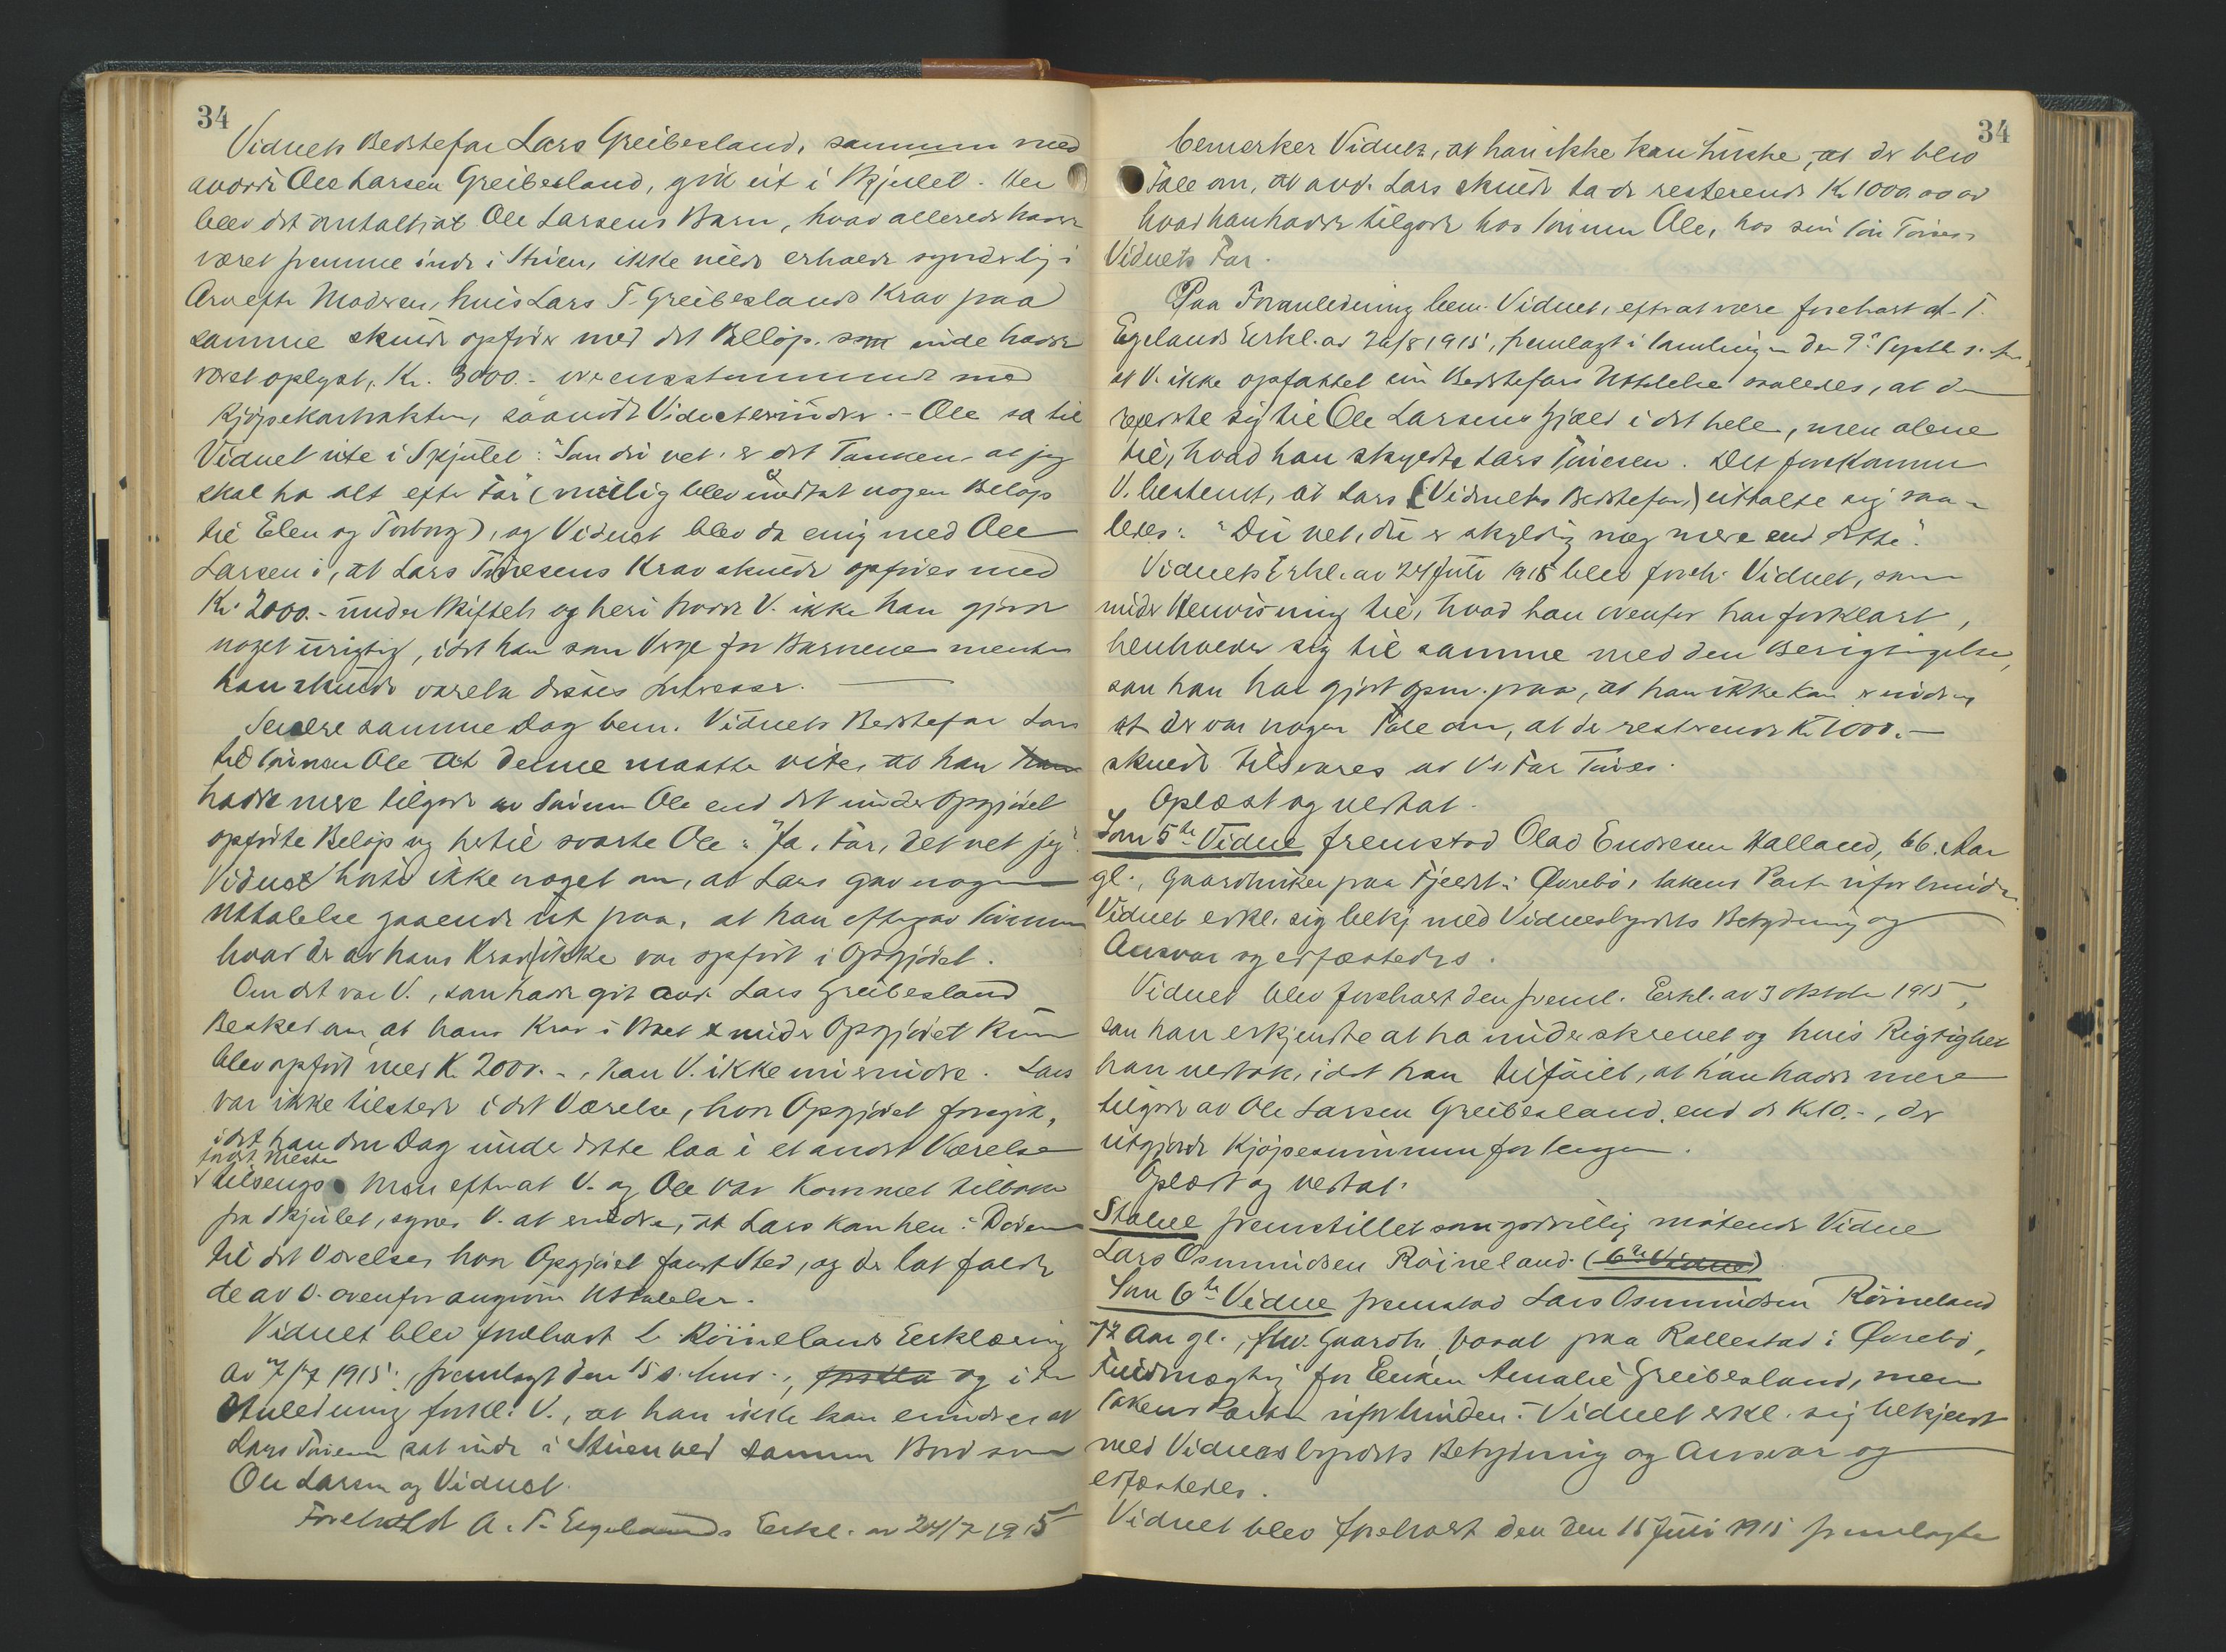 34
Vidnets Bedstefar Lars Greibesland, sammen med
avdøde Ole Larsen Greibesland, gik ut i Skjulet. Her
blev det omtalt, at Ole Larsens Barn, hvad allerede hadde
været fremme inde i Stuen, ikke vilde erholde synderlig i
Arv efter Moderen, hvis Lars T. Greibeslands Krav paa
samme skulde opføres med det Belløp, som inde hadde
været oplyst, Kr. 3000.- overensstemmende med
Kjøpekontrakten, saavidt Vidnet erindrer. - Ole sa til
Vidnet ute i Skjulet: "Son du vet, er det Tanken at jeg
skal ha alt efter Far" (nemlig blev undtat nogen Beløp
til Elen og Torborg), og Vidnet blev da enig med Ole
Larsen i, at Lars Tøresens Krav skulde opføres med
Kr. 2000.- under Skiftet og heri trodde V. ikke han gjorde
noget urigtig, idet han som Verge for Barnene mente
han skulde vareta disses Interesser.
Senere samme Dag bem. Vidnets Bedstefar Lars
til Sønnen Ole at denne maatte vite, at han han
hadde mere tilgode av Sønnen Ole end det under Opgjøret
opførte Beløp og hertil svarte Ole: "Ja, Far, det vet jeg".
Vidnet hørte ikke noget om, at Lars gav nogen
Uttalelse gaaende ut paa, at han eftergav Sønnen
hvad der av hans Krav ikke var opført i Opgjøret.
Om det var V., som hadde git avd. Lars Greibesland
Besked om, at hans Krav i Boet under Opgjøret kun
blev opført med K. 2000.-, kan V. ikke erindre. Lars
var ikke tilstede i det Værelse, hvor Opgjøret foregik,
idet han den Dag under dette laa i et andet Værelse
for det meste
tilsengs. Men efterat V. og Ole var kommet tilbake
fra Skjulet, synes V. at erindre, at Lars kom hen i Døren
til det Værelse, hvor Opgjøret fandt Sted, og da lot falde
de av V. ovenfor angivne Uttalelser.
Vidnet blev forehart L. Røinelands Erklæring
av 7/7 1915, fremlagt den 15 s. Mnd., og i den
Anledning forkl. V., at han ikke kan erindre at
Lars Tøresen sat inde i Stuen ved samme Bord som
Ole Larsen og Vidnet.
Foreholdt A. T. Egelands Erkl. av 24/7 1915
34
bemerker Vidnet, at han ikke kan huske, at der blev
Tale om, at avd. Lars skulde ta de resterende Kr 1000.00 av
hvad han hadde tilgode hos Sønnen Ole, hos sin Søn Tøres,
Vidnets Far.
Paa Foranledning bem. Vidnet, efter at være forehart A. T.
Egelands Erkl. av 26/8 1915, fremlagt i Samlingen den 9de Septbr s.
at V. ikke opfattet sin Bedstefars Uttalelse saaledes, at den
refererte sig til Ole Larsens Gjæld i det hele, men alene
til, hvad han skyldte Lars Tøresen. Det forekommer
V. bestemt, at Lars (Vidnets Bedstefar,) uttalte sig saa-
ledes: "Du vet, du er skyldig mig mere end dette".
Vidnets Erkl. av 24 Juli 1915 blev foreh. Vidnet, som
under Henvisning til, hvad han ovenfor har forklart,
henholder sig til samme med den Berigtigelse,
som han har gjort opm. paa, at han ikke kan erindre,
at der var nogen Tale om, at de resterende Kr 1000.-
skulde tilsvares av V's. Far Tøres.
Oplæst og vedtat.
Som 5te Vidne fremstod Olav Endresen Halland, 66 Aar
gl., Gaardbruker paa Fjeldt i Øvrebø, Sakens Parter uforbunden.
Vidnet erkl. sig bekj. med Vidnesbyrdets Betydning og
Ansvar og edfæstedes.
Vidnet blev forehart den freml. Erkl. av 3 Oktober 1915,
som han erkjendte at ha underskrevet og hvis Rigtighet
han vedtok, idet han tilføiet, at han hadde mere
tilgode av Ole Larsen Greibesland, end de Kr 10.-, der
utgjorde Kjøpesummen for Sengen.
Oplæst og vedtat.
Stablel fremstillet som godvillig møtende Vidne
Lars Osmundsen Røineland. (6te Vidne)
Som 6te Vidne fremstod Lars Osmundsen Røineland
72 Aar gl., fhv. Gaardbr. bosat paa Rallestad i Øvrebø,
Fuldmægtig for Enken Amalie Greibesland, men
Sakens Parter uforbunden. Vidnet erkl. sig bekjendt
med Vidnesbyrdets Betydning og Ansvar og
edfæstedes.
Vidnet blev forehart den den 15 Juli 1915 fremlagte